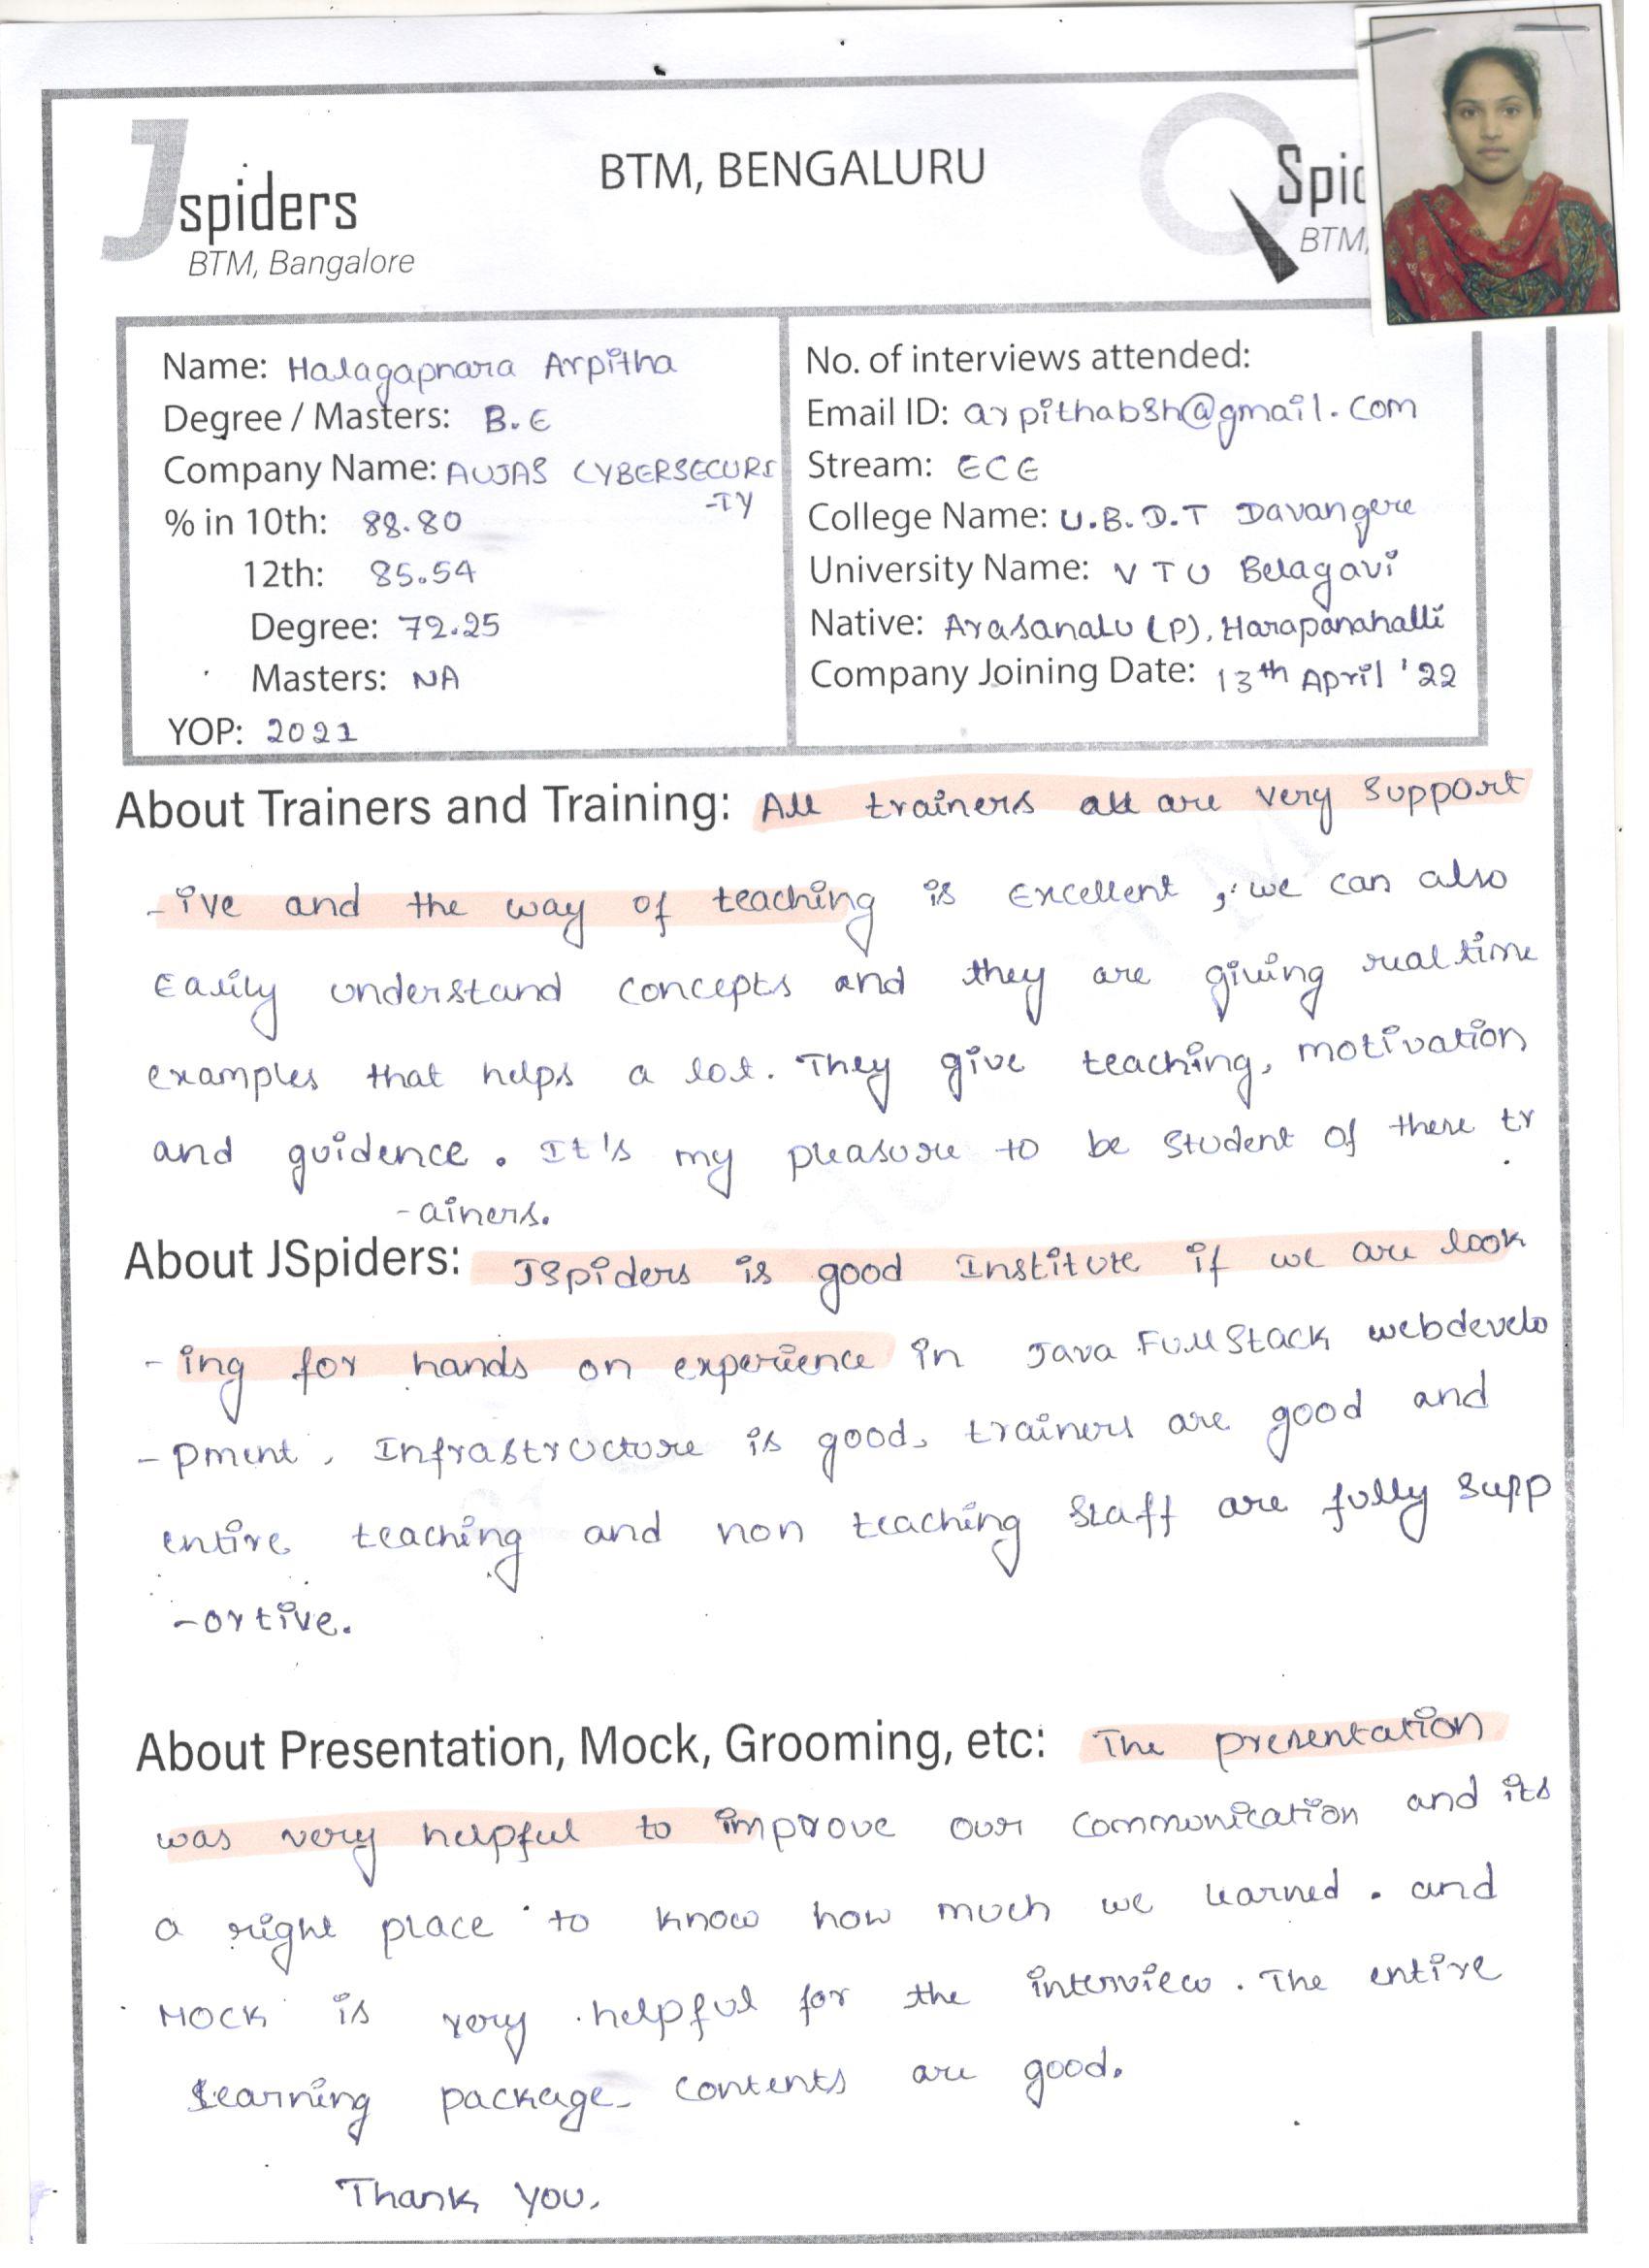 Jspiders
BTM, Bangalore
BTM, BENGALURU
Spi
BTM,
Name: Halagapnara Arpitha
Degree / Masters: B.E
Company Name: AUJAS CYBERSECURI
-TY
% in 10th: 88.80
12th: 85.54
Degree: 72.25
Masters: NA
YOP: 2021
No. of interviews attended:
Email ID: arpithabsh@gmail.com
Stream: ECE
College Name: U.B.D.T Davangere
University Name: VTU Belagavi
Native: Arasanalu (P), Harapanahalli
Company Joining Date: 13th April '22
About Trainers and Training: All trainers all are very support
-ive and the way of teaching is Excellent, we can also
Easily understand concepts and they are giving real time
examples that helps a lot. They give teaching, motivation
and guidence. It's my pleasure to be student of there tr
-ainers.
About JSpiders: JSpiders is good Institute if we are look
-ing for hands on experience in Java FullStack webdevelo
-pment, Infrastructure is good, trainers are good and
entire teaching and non teaching staff are fully supp
-ortive.
About Presentation, Mock, Grooming, etc: The presentation
was very helpful to improve our communication and its
a right place to know how much we learned. and
Mock is very helpful for the interview. The entire
learning package contents are good.
Thank you.